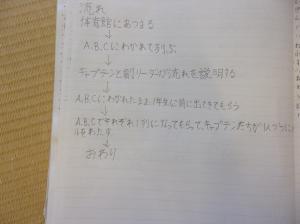 流れ
体育館にあつまる
↓
A,B,Cにわかれてすわる
↓
キャプテンと副リーダが流れを説明する
↓
A,B,Cにわかれたまま、1年生に前に出てきてもらう
↓
A,B,Cでそれぞれ1列になってもらって、キャプテンたちが1人づつに
をわたす
↓
おわり